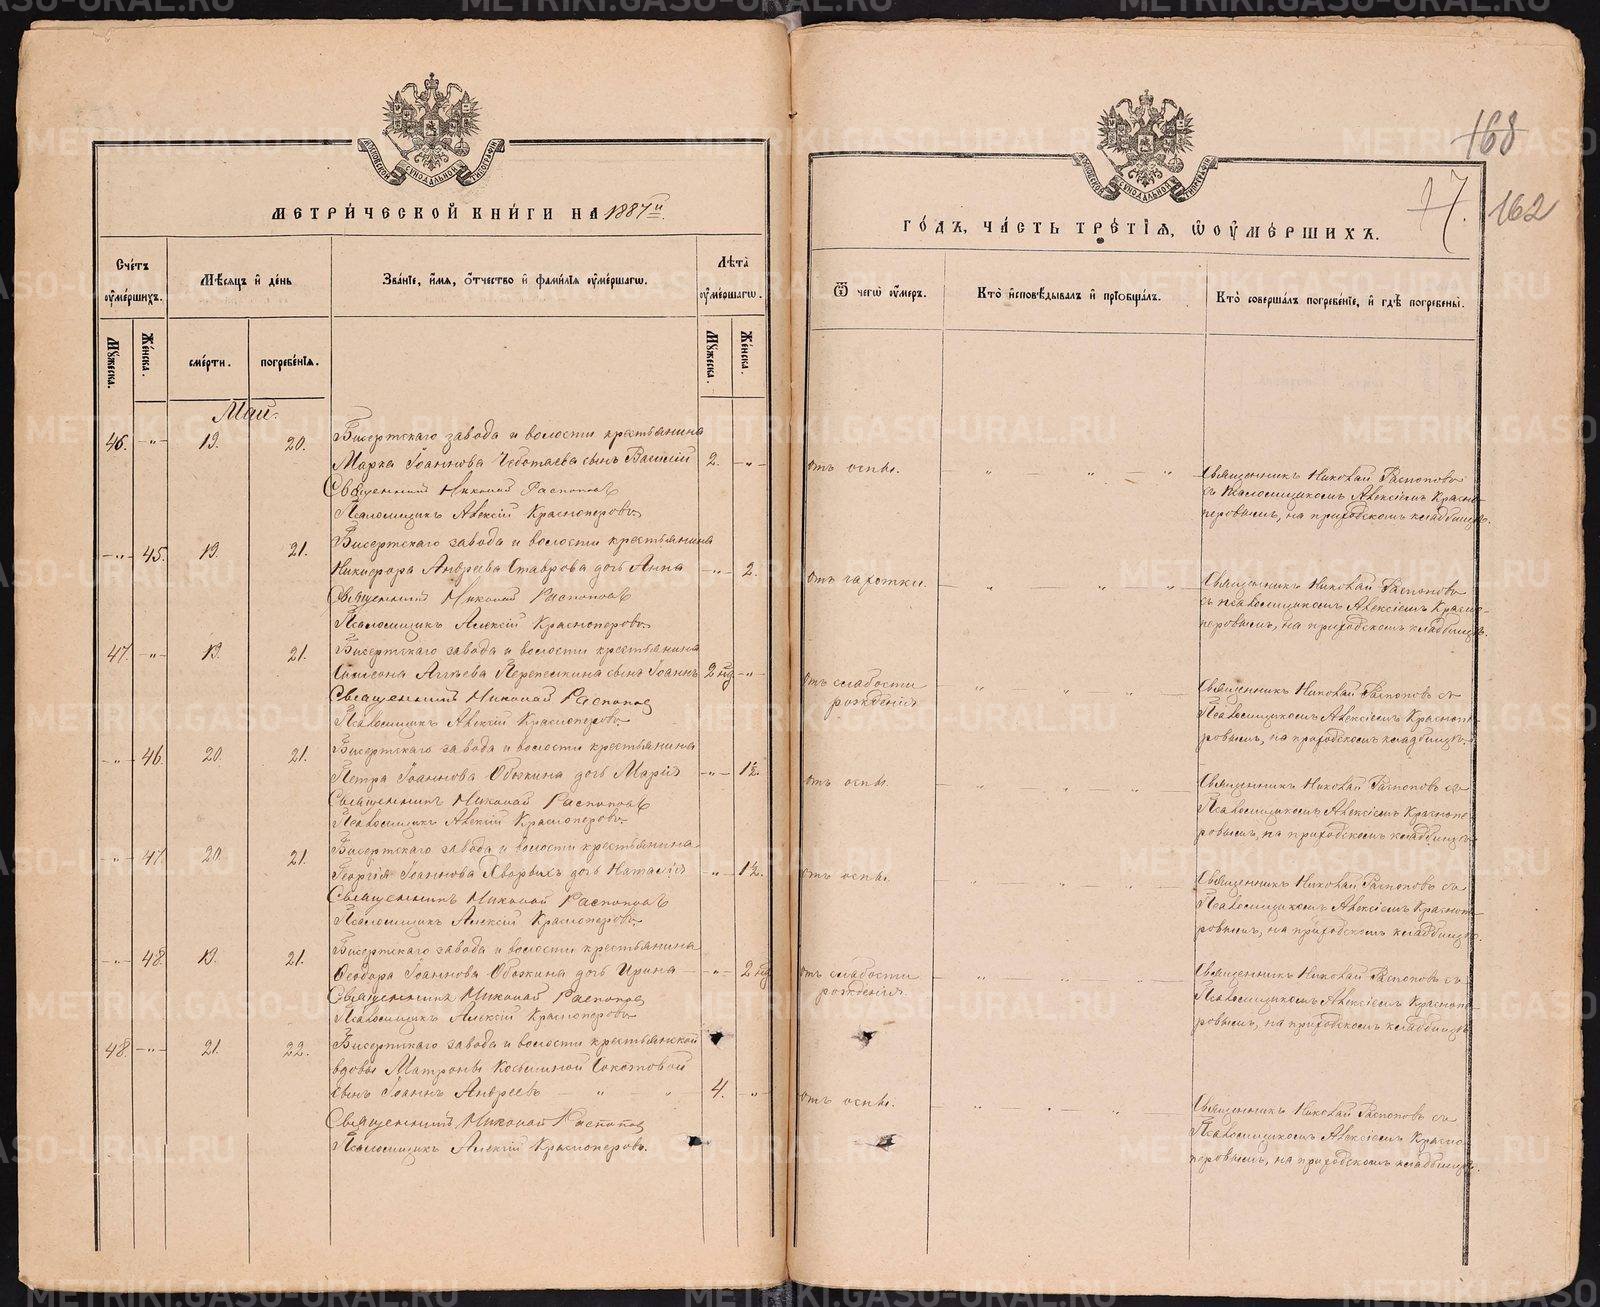 МЕТРИЧЕСКОЙ КНИГИ НА 1887й
ГОДЪ, ЧАСТЬ ТРЕТІЯ, Ѿ ОУМЕРШИХЪ.
168
17.
162
Счетъ оумершихъ.
Мѣсяцъ и день
Званіе, имя, отчество и фамилія оумершагѡ.
Лѣта оумершагѡ.
Ѿ чегѡ оумеръ.
Кто исповѣдывалъ и пріобщалъ.
Кто совершалъ погребеніе, и гдѣ погребены.
Мужеска.
Женска.
смерти.
погребенія.
Мужеска.
Женска.
Май.
46. - " - 19. 20. Бисертскаго завода и волости крестьянина
Марка Іоаннова Чеботаева сынъ Василій 2. - " - отъ оспы. " " "
Священникъ Николай Распоповъ
Псаломщикъ Алексій Красноперовъ
Священникъ Николай Распоповъ
съ псаломщикомъ Алексіемъ Красно-
перовымъ, на приходскомъ кладбищѣ.
- " - 45. 19. 21. Бисертскаго завода и волости крестьянина
Никифора Андреева Ставрова дочь Анна - " - 2. отъ чахотки. " " "
Священникъ Николай Распоповъ
Псаломщикъ Алексій Красноперовъ
Священникъ Николай Распоповъ
съ псаломщикомъ Алексіемъ Красно-
перовымъ, на приходскомъ кладбищѣ.
47. - " - 19. 21. Бисертскаго завода и волости крестьянина
Симеона Перепелкина сынъ Іоаннъ 2 нд - " - отъ слабости рожденія " " "
Священникъ Николай Распоповъ
Псаломщикъ Алексій Красноперовъ
Священникъ Николай Распоповъ съ
Псаломщикомъ Алексіемъ Краснопе-
ровымъ, на приходскомъ кладбищѣ.
- " - 46. 20. 21. Бисертскаго завода и волости крестьянина
Петра Іоаннова Обожина дочь Марія - " - 1½. отъ оспы. " " "
Священникъ Николай Распоповъ
Псаломщикъ Алексій Красноперовъ
Священникъ Николай Распоповъ съ
Псаломщикомъ Алексіемъ Краснопе-
ровымъ, на приходскомъ кладбищѣ.
- " - 47. 20. 21. Бисертскаго завода и волости крестьянина
Георгія Іоаннова Хворыхъ дочь Наталія - " - 1½. отъ оспы. " " "
Священникъ Николай Распоповъ
Псаломщикъ Алексій Красноперовъ
Священникъ Николай Распоповъ съ
Псаломщикомъ Алексіемъ Краснопе-
ровымъ, на приходскомъ кладбищѣ.
- " - 48. 19. 21. Бисертскаго завода и волости крестьянина
Ѳеодора Іоаннова Обожина дочь Ирина - " - 2 нд отъ слабости рожденія. " " "
Священникъ Николай Распоповъ
Псаломщикъ Алексій Красноперовъ
Священникъ Николай Распоповъ съ
Псаломщикомъ Алексіемъ Краснопе-
ровымъ, на приходскомъ кладбищѣ
48. - " - 21. 22. Бисертскаго завода и волости крестьянской
вдовы Матроны Косьминой
сынъ Іоаннъ Андреевъ " " 4. - " - отъ оспы. " " "
Священникъ Николай Распоповъ
Псаломщикъ Алексій Красноперовъ.
Священникъ Николай Распоповъ съ
Псаломщикомъ Алексіемъ Красно-
перовымъ, на приходскомъ кладбищѣ.
METRIKI.GASO-URAL.RU